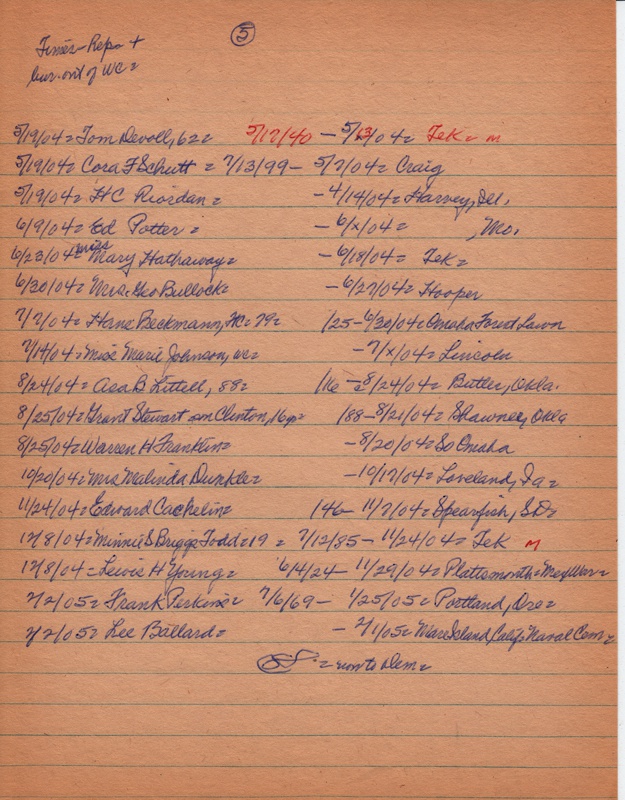 5
Times-Repo +
bur. out of WC=
5/19/04= Tom Devoll, 62= 5/17/40 - 5/13/04= Tek= m
5/19/04= Cora F Schutt = 7/13/99 - 5/7/04= Craig
5/19/04= HC Riordan= - 4/14/04= Harvey, Ill.
6/9/04= Ed Potter= - 6/x/04= , Mo.
6/23/04= Miss Mary Hathaway= - 6/18/04= Tek=
6/30/04= Mrs. Geo Bullock= - 6/27/04= Hooper
7/7/04= Hans Beckmann, = 79= /25 - 6/30/04= Omaha Forest Lawn
7/14/04= Miss Marie Johnson, - 7/x/04= Lincoln
8/24/04= Asa B Littell, 88= /16 - 8/24/04= Butler, Okla.
8/25/04= Grant Stewart son Clinton, 16y= /88 - 8/21/04= Shawnee, Okla
8/25/04= Warren H Franklin= - 8/20/04= So Omaha
10/20/04= Mrs Malinda Dunkle= - 10/17/04= Loveland, Ia=
11/24/04= Edward Cachelin= /46 - 11/7/04= Spearfish, SD=
12/8/04= Minnie S Briggs Todd= 19= 7/12/85 - 11/24/04= Tek m
12/8/04= Lewis H Young= 6/4/24 - 11/29/04= Plattsmouth= Mex War=
2/2/05= Frank Perkins= 7/6/69 - 1/25/05= Portland, Ore=
2/2/05= Lee Ballard= - 2/1/05= Mare Island, Calif= Naval Cem=
= to Dem=